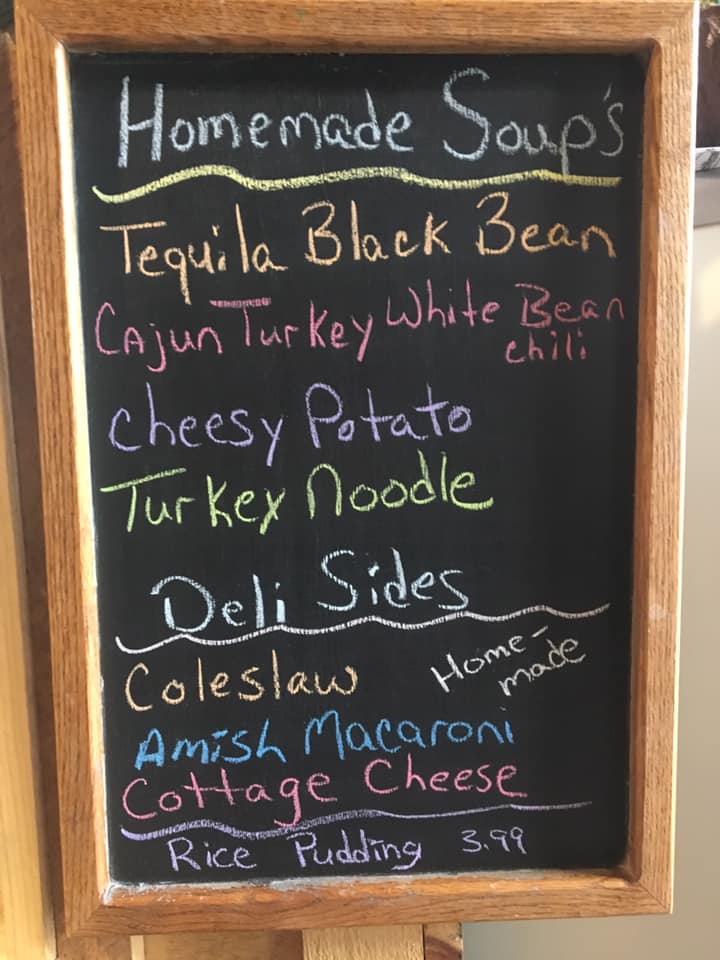 Homemade Soup's
Tequila Black Bean
Cajun Turkey White Bean
chili
Cheesy Potato
Turkey Noodle
Deli Sides
Coleslaw
Home-
made
Amish Macaroni
Cottage Cheese
Rice Pudding 3.99